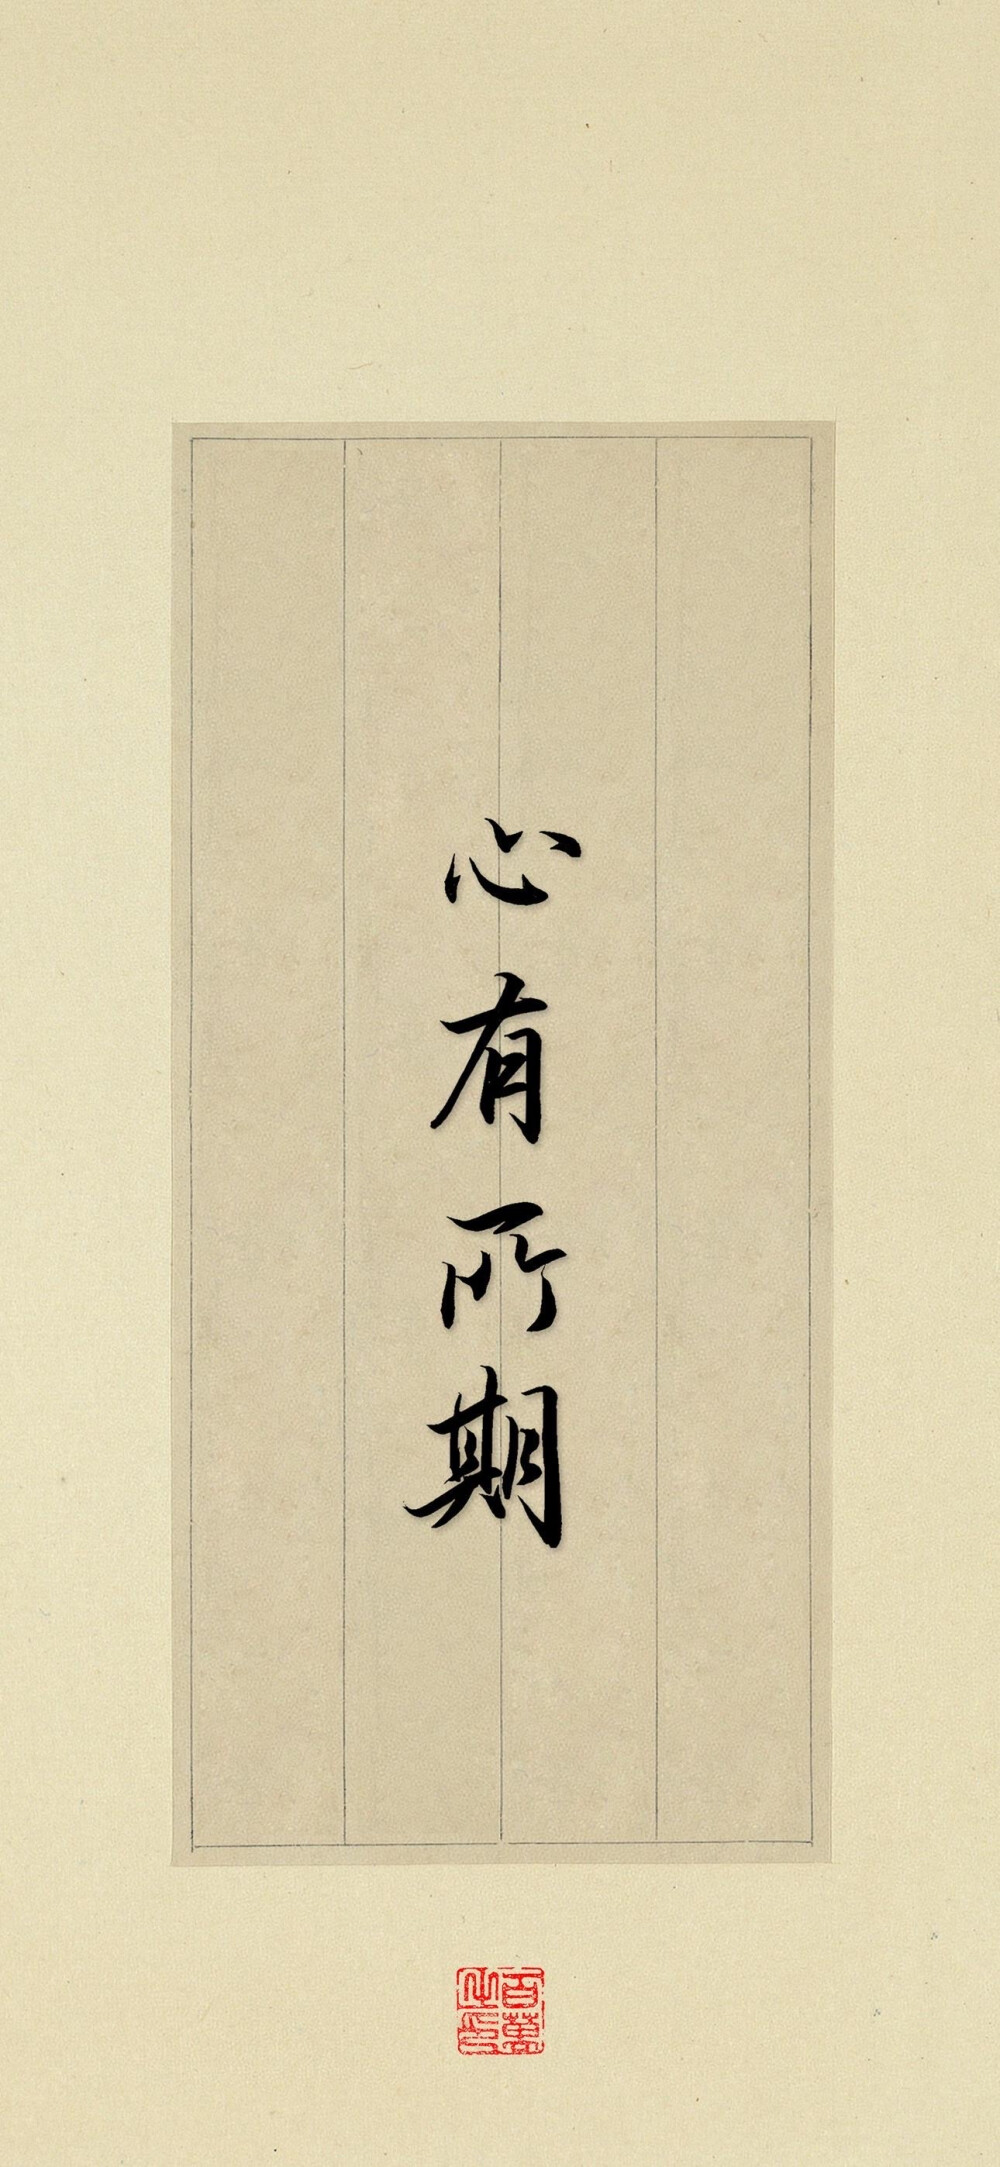 心有所期